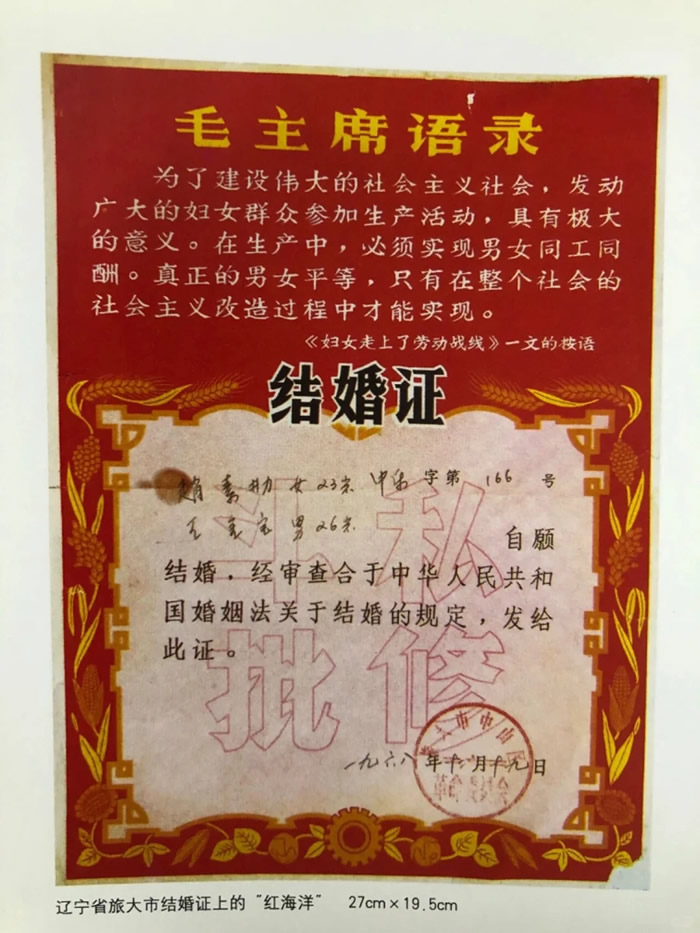 毛主席语录
为了建设伟大的社会主义社会，发动
广大的妇女群众参加生产活动，具有极大
的意义。在生产中，必须实现男女同工同
酬。真正的男女平等，只有在整个社会的
社会主义改造过程中才能实现。
《妇女走上了劳动战线》一文的按语
结婚证
女23岁 字第 166 号
男26岁
自愿
结婚，经审查合于中华人民共和
国婚姻法关于结婚的规定，发给
此证。
斗私
批修
市中山区
一九六八年十月十九日
辽宁省旅大市结婚证上的“红海洋” 27cm×19.5cm